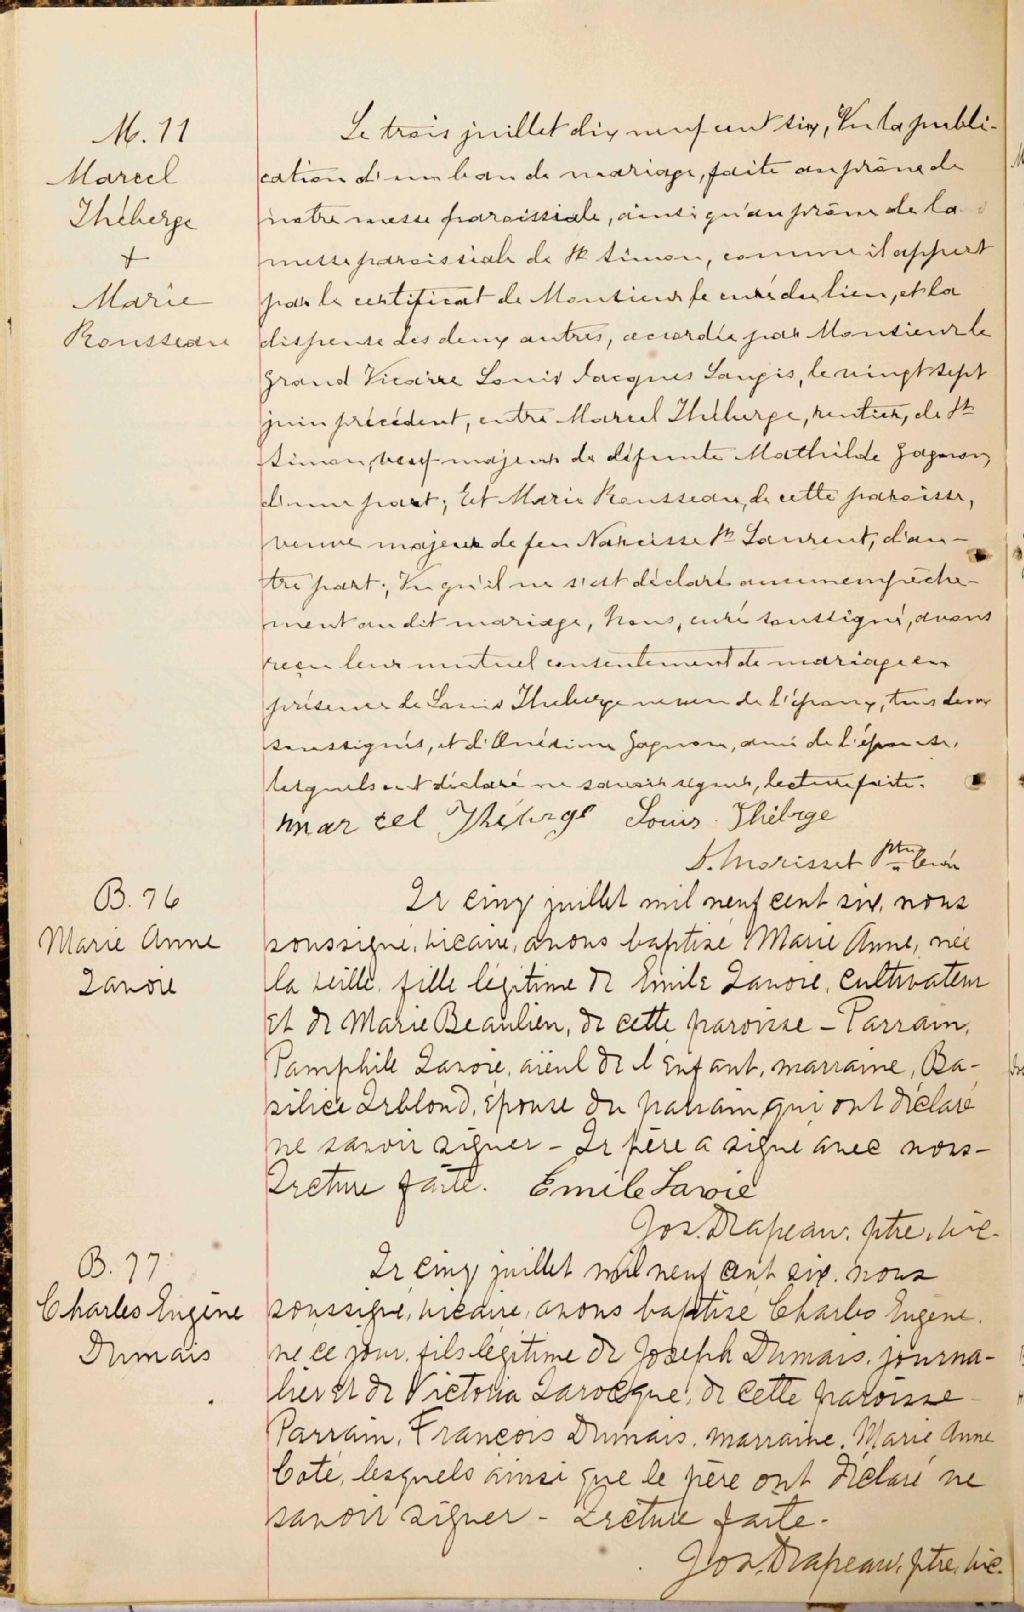 M. 11
Marcel
Théberge
+
Marie
Rousseau
Le trois juillet dix neuf cent six, Vu la publi-
cation d'un ban de mariage, faite au prône de
notre messe paroissiale, ainsi qu'au prône de la
messe paroissiale de St Simon, comme il appert
par le certificat de Monsieur le curé du lieu, et la
dispense des deux autres, accordée par Monsieur le
Grand Vicaire Louis Jacques Langis, le vingt sept
juin précédent, entre Marcel Théberge, rentier, de St
Simon, veuf majeur de défunte Mathilde Gagnon,
d'une part; Et Marie Rousseau, de cette paroisse,
veuve majeur de feu Narcisse St Laurent, d'au-
tre part; Vu qu'il ne s'est déclaré aucun empêche-
ment au dit mariage, Nous, curé soussigné, avons
reçu leur mutuel consentement de mariage en
présence de Louis Théberge neveu de l'époux, tous deux
soussignés, et d'Onésime Gagnon, ami de l'épouse,
lesquels ont déclaré ne savoir signer, lecture faite.
marcel Théberge Louis Théberge
D. Morisset Ptre Curé
B. 76
Marie Anne
Lavoie
Le cinq juillet mil neuf cent six, nous
soussigné, vicaire, avons baptisé Marie Anne, née
la veille, fille légitime de Emile Lavoie, cultivateur
et de Marie Beaulieu, de cette paroisse - Parrain,
Pamphile Lavoie, aïeul de l'enfant, marraine, Ba-
silice Leblond, épouse du parrain qui ont déclaré
ne savoir signer - Le père a signé avec nous -
Lecture faite. Emile Lavoie
Jos. Drapeau, ptre, vic.
B. 77
Charles Eugène
Dumais
Le cinq juillet mil neuf cent six, nous
soussigné, vicaire, avons baptisé Charles Eugène,
né ce jour, fils légitime de Joseph Dumais, journa-
lier et de Victoria Larocque, de cette paroisse -
Parrain, François Dumais, marraine, Marie Anne
Coté, lesquels ainsi que le père ont déclaré ne
savoir signer - Lecture faite -
Jos. Drapeau, ptre, vic.